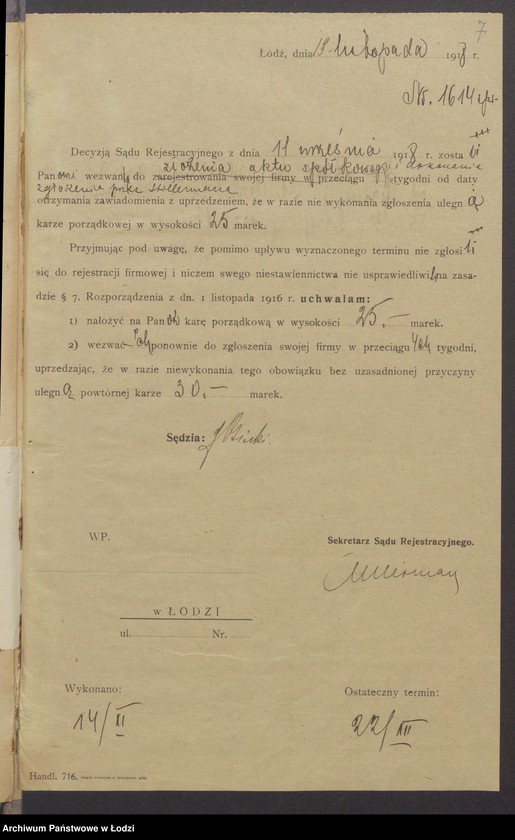 7
Łódź, dnia 13 listopada 1918 r.
Nr. 1614
Decyzją Sądu Rejestracyjnego z dnia 11 września 1918 r. zosta li
złożenia aktu spółkowego i dokonania
Pan owi wezwani do zarejestrowania swojej firmy w przeciągu tygodni od daty
zgłoszenia przez
otrzymania zawiadomienia z uprzedzeniem, że w razie nie wykonania zgłoszenia ulegn ą
karze porządkowej w wysokości 25 marek.
Przyjmując pod uwagę, że pomimo upływu wyznaczonego terminu nie zgłosi li
się do rejestracji firmowej i niczem swego niestawiennictwa nie usprawiedliwi li, na zasa-
dzie § 7. Rozporządzenia z dn. 1 listopada 1916 r. uchwalam:
1) nałożyć na Pan ów karę porządkową w wysokości 25.— marek.
2) wezwać ich ponownie do zgłoszenia swojej firmy w przeciągu tygodni,
uprzedzając, że w razie niewykonania tego obowiązku bez uzasadnionej przyczyny
ulegn ą powtórnej karze 30.— marek.
Sędzia:
WP.
Sekretarz Sądu Rejestracyjnego.
w ŁODZI
ul. Nr.
Wykonano:
14/XI
Ostateczny termin:
22/XII
Handl. 716.
Archiwum Państwowe w Łodzi